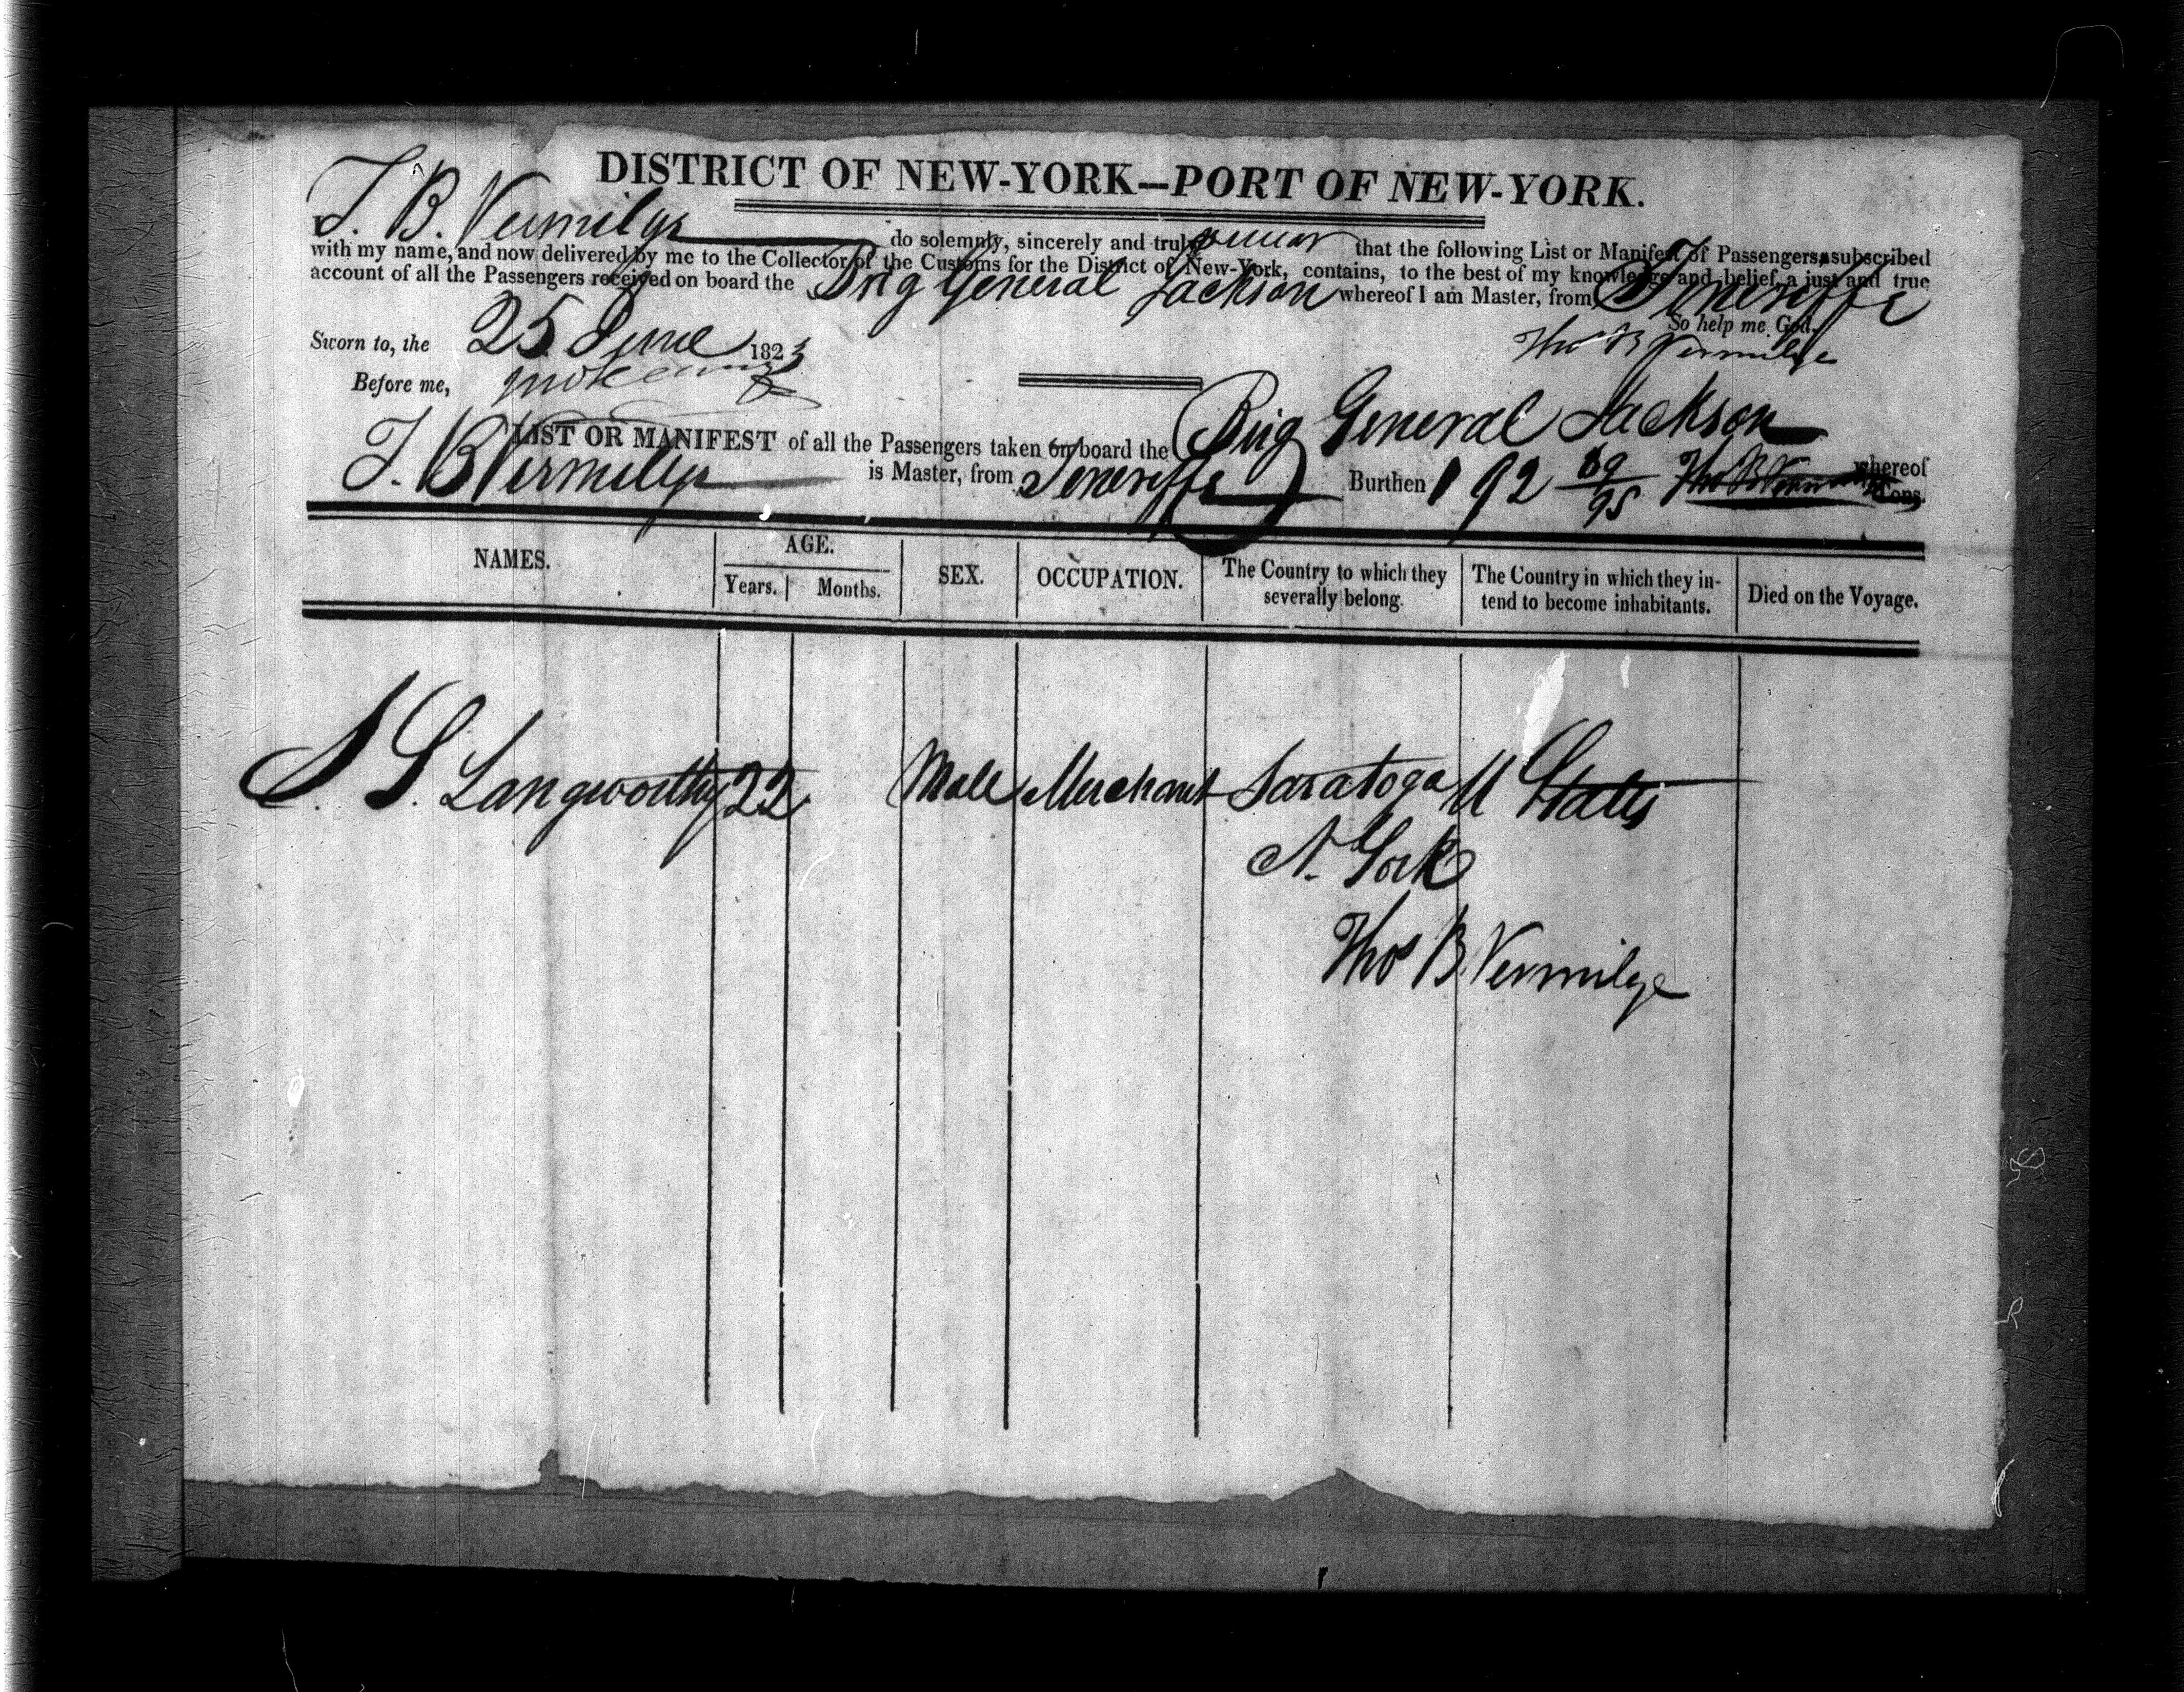 DISTRICT OF NEW-YORK—PORT OF NEW-YORK.
T. B. Vermilye do solemnly, sincerely and truly swear that the following List or Manifest of Passengers, subscribed
with my name, and now delivered by me to the Collector of the Customs for the District of New-York, contains, to the best of my knowledge and belief, a just and true
account of all the Passengers received on board the Brig General Jackson whereof I am Master, from Teneriffe
So help me God.
Sworn to, the 25 June 1823
Thos B Vermilye
Before me,
LIST OR MANIFEST of all the Passengers taken on board the Brig General Jackson whereof
T. B Vermilye is Master, from Teneriffe Burthen 192 89/95 Thos B Vermilye Tons.
NAMES. AGE. SEX. OCCUPATION. The Country to which they severally belong. The Country in which they intend to become inhabitants. Died on the Voyage.
Years. Months.
S. S. Langworthy 22 Male Merchant Saratoga U States
N. York
Thos B Vermilye